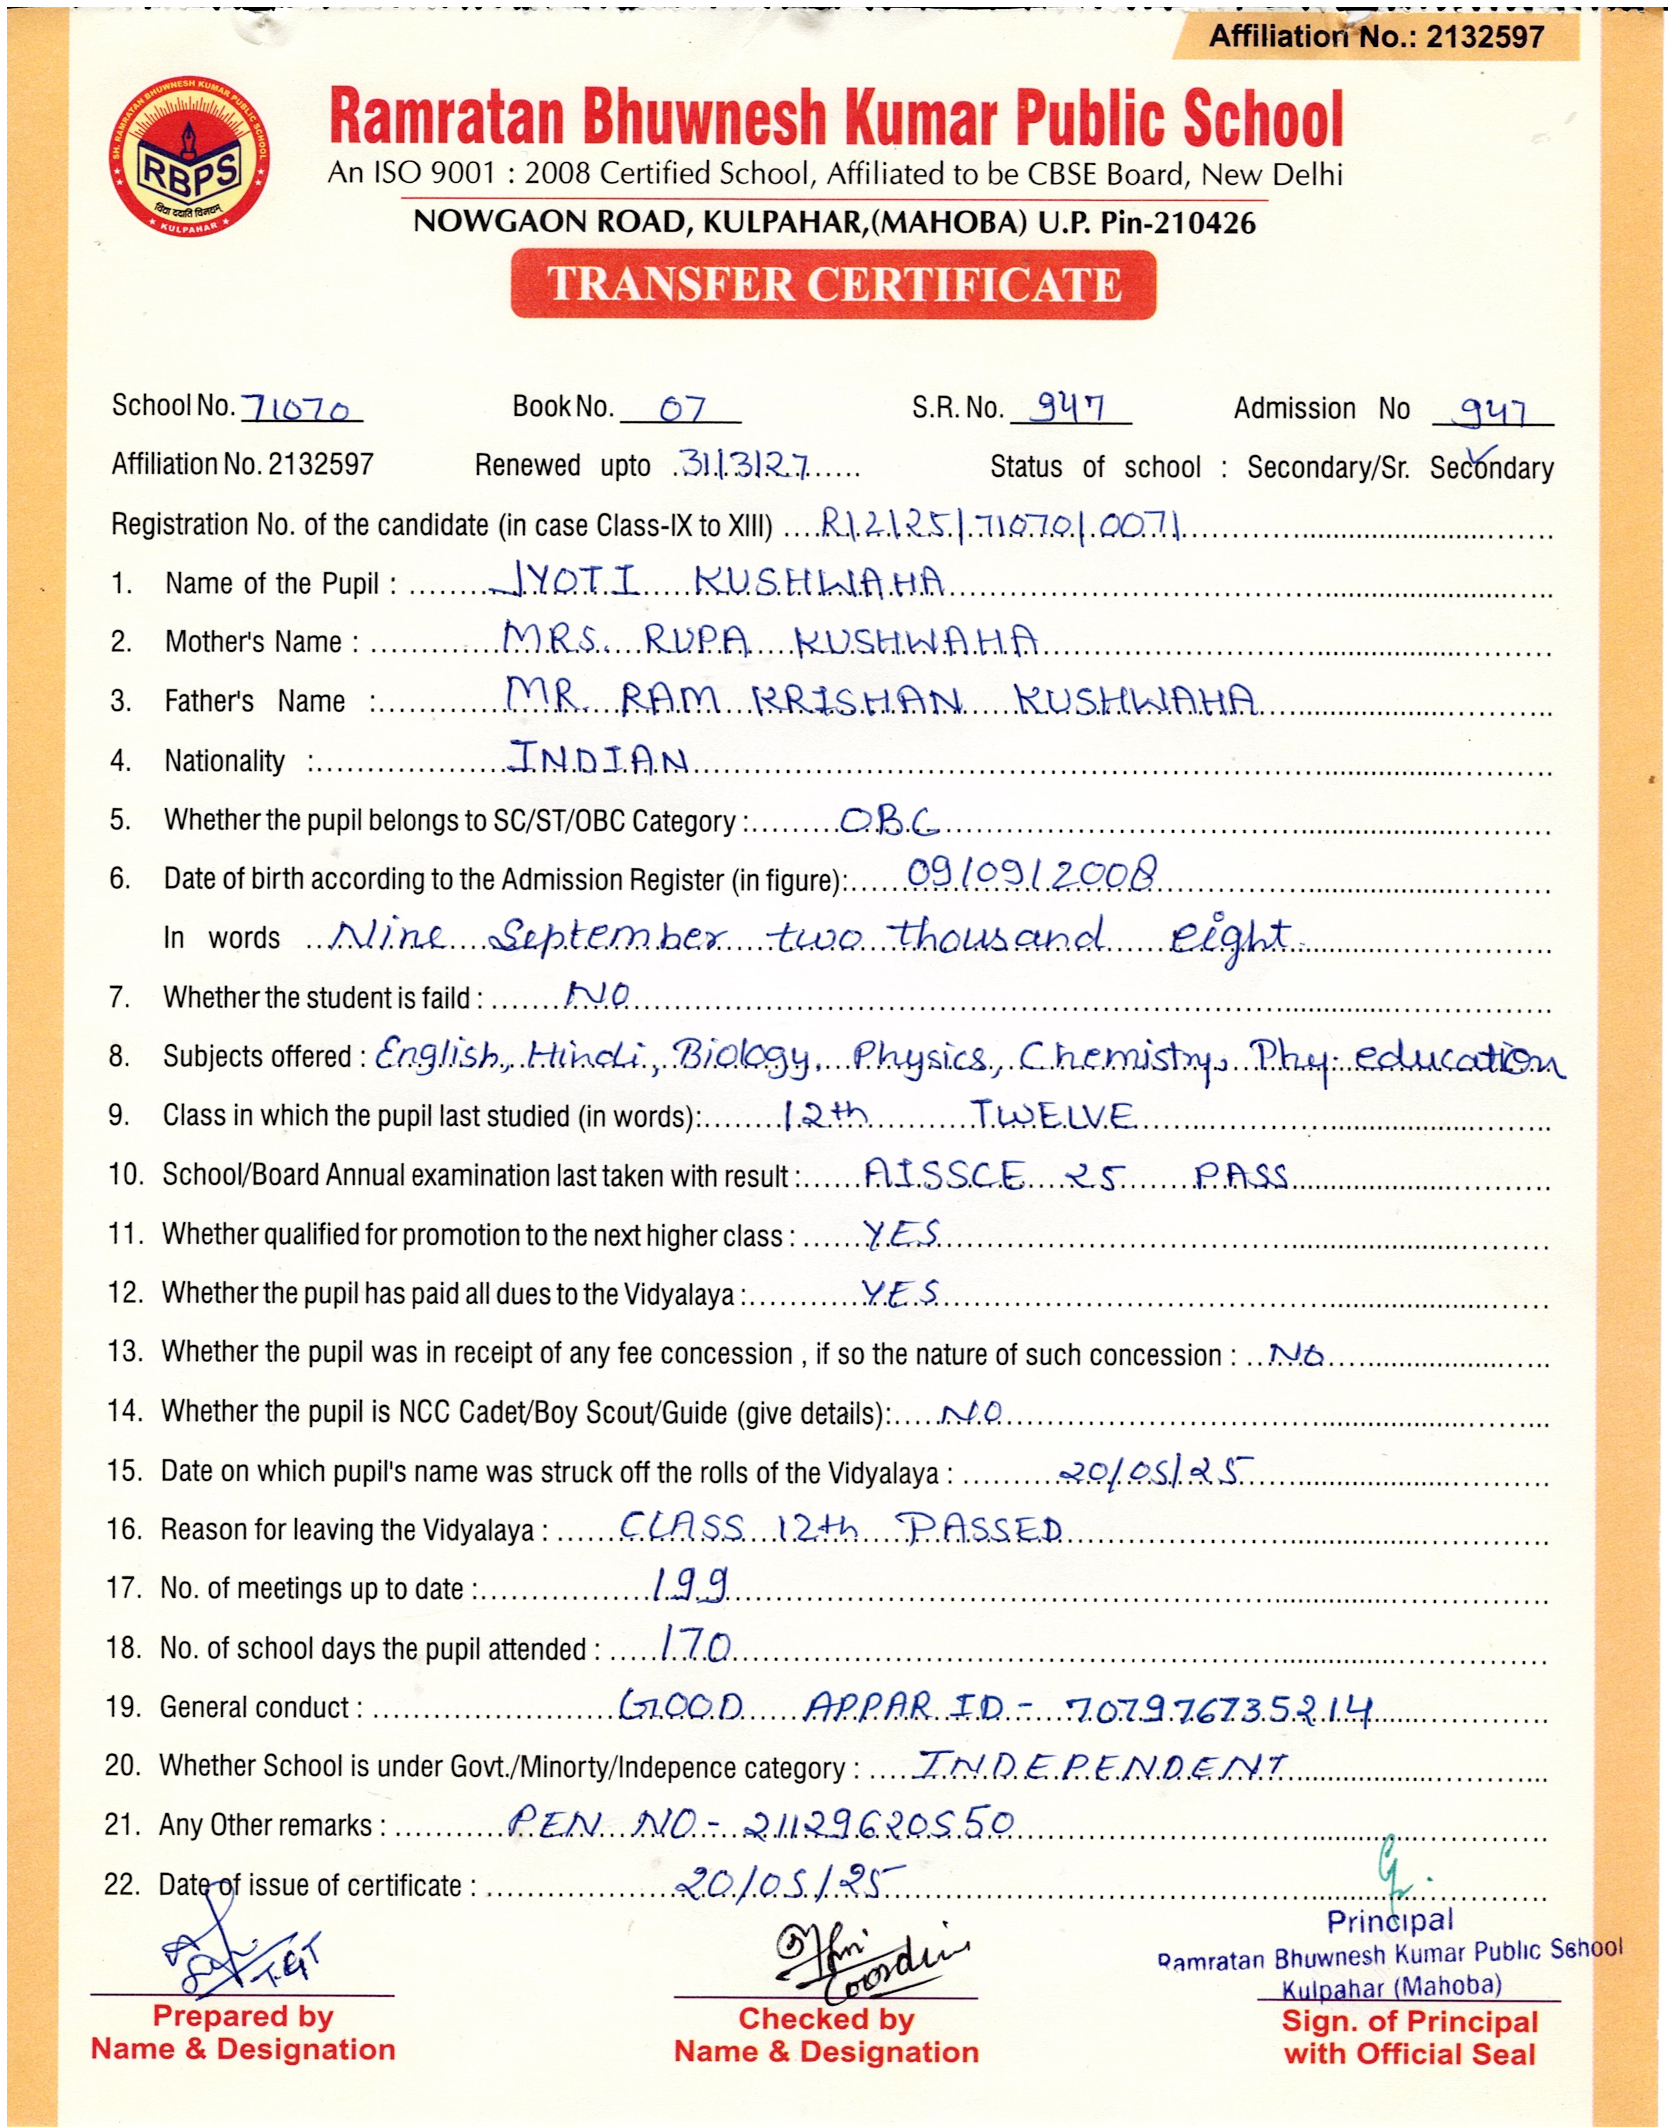 Affiliation No.: 2132597
SH. RAMRATAN BHUWNESH KUMAR PUBLIC SCHOOL
RBPS
विद्या ददाति विनयम्
KULPAHAR
Ramratan Bhuwnesh Kumar Public School
An ISO 9001 : 2008 Certified School, Affiliated to be CBSE Board, New Delhi
NOWGAON ROAD, KULPAHAR,(MAHOBA) U.P. Pin-210426
TRANSFER CERTIFICATE
School No. 71070 Book No. 07 S.R. No. 947 Admission No 947
Affiliation No. 2132597 Renewed upto 31/3/27 Status of school : Secondary/Sr. Secondary
Registration No. of the candidate (in case Class-IX to XIII) R/2/25/71070/0071
1. Name of the Pupil : JYOTI KUSHWAHA
2. Mother's Name : MRS. RUPA KUSHWAHA
3. Father's Name : MR. RAM KRISHAN KUSHWAHA
4. Nationality : INDIAN
5. Whether the pupil belongs to SC/ST/OBC Category : OBC
6. Date of birth according to the Admission Register (in figure): 09/09/2008
In words Nine September two thousand eight
7. Whether the student is faild : NO
8. Subjects offered : English, Hindi, Biology, Physics, Chemistry, Phy. education
9. Class in which the pupil last studied (in words): 12th TWELVE
10. School/Board Annual examination last taken with result : AISSCE 25 PASS
11. Whether qualified for promotion to the next higher class : YES
12. Whether the pupil has paid all dues to the Vidyalaya : YES
13. Whether the pupil was in receipt of any fee concession , if so the nature of such concession : NO
14. Whether the pupil is NCC Cadet/Boy Scout/Guide (give details): NO
15. Date on which pupil's name was struck off the rolls of the Vidyalaya : 20/05/25
16. Reason for leaving the Vidyalaya : CLASS 12th PASSED
17. No. of meetings up to date : 199
18. No. of school days the pupil attended : 170
19. General conduct : GOOD APPAR ID - 707976735214
20. Whether School is under Govt./Minorty/Indepence category : INDEPENDENT
21. Any Other remarks : PEN NO - 21129620550
22. Date of issue of certificate : 20/05/25
T.G.T
Principal
Ramratan Bhuwnesh Kumar Public School
Kulpahar (Mahoba)
Prepared by Checked by Sign. of Principal
Name & Designation Name & Designation with Official Seal